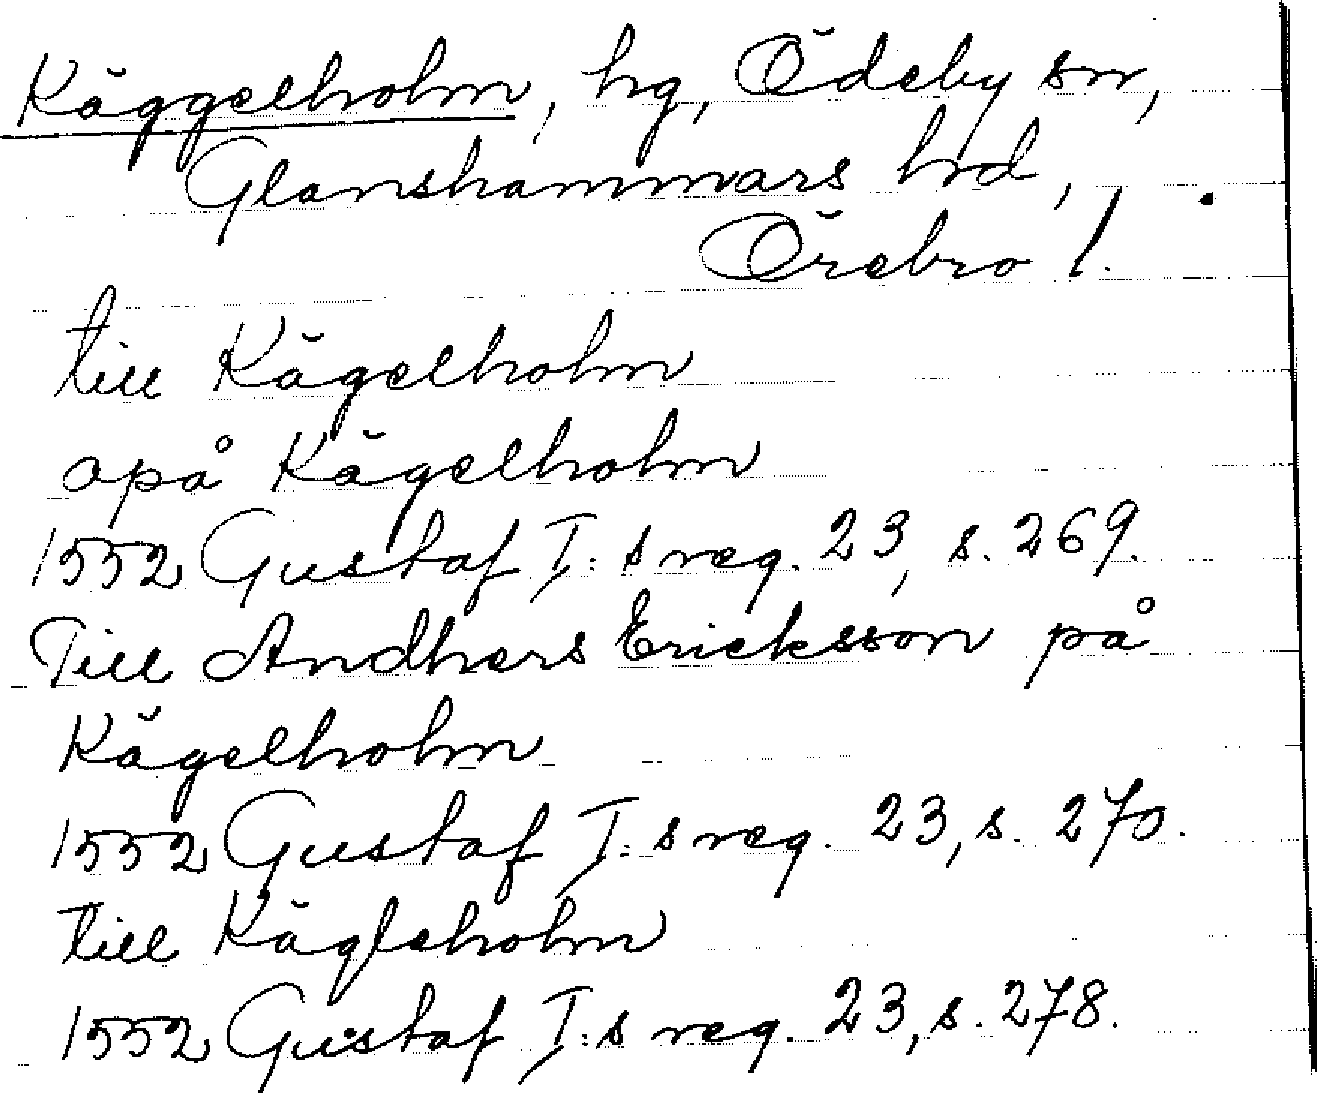 Käggelholm, hg, Ödeby sn,
Glanshammars hrd,
Örebro l.
till Kägelholm
opå Kägelholm
1552 Gustaf I:s reg. 23, s. 269.
Till Andhers Ericksson på
Kägelholm
1552 Gustaf I:s reg. 23, s. 270.
till Kägleholm
1552 Gustaf I:s reg. 23, s. 278.